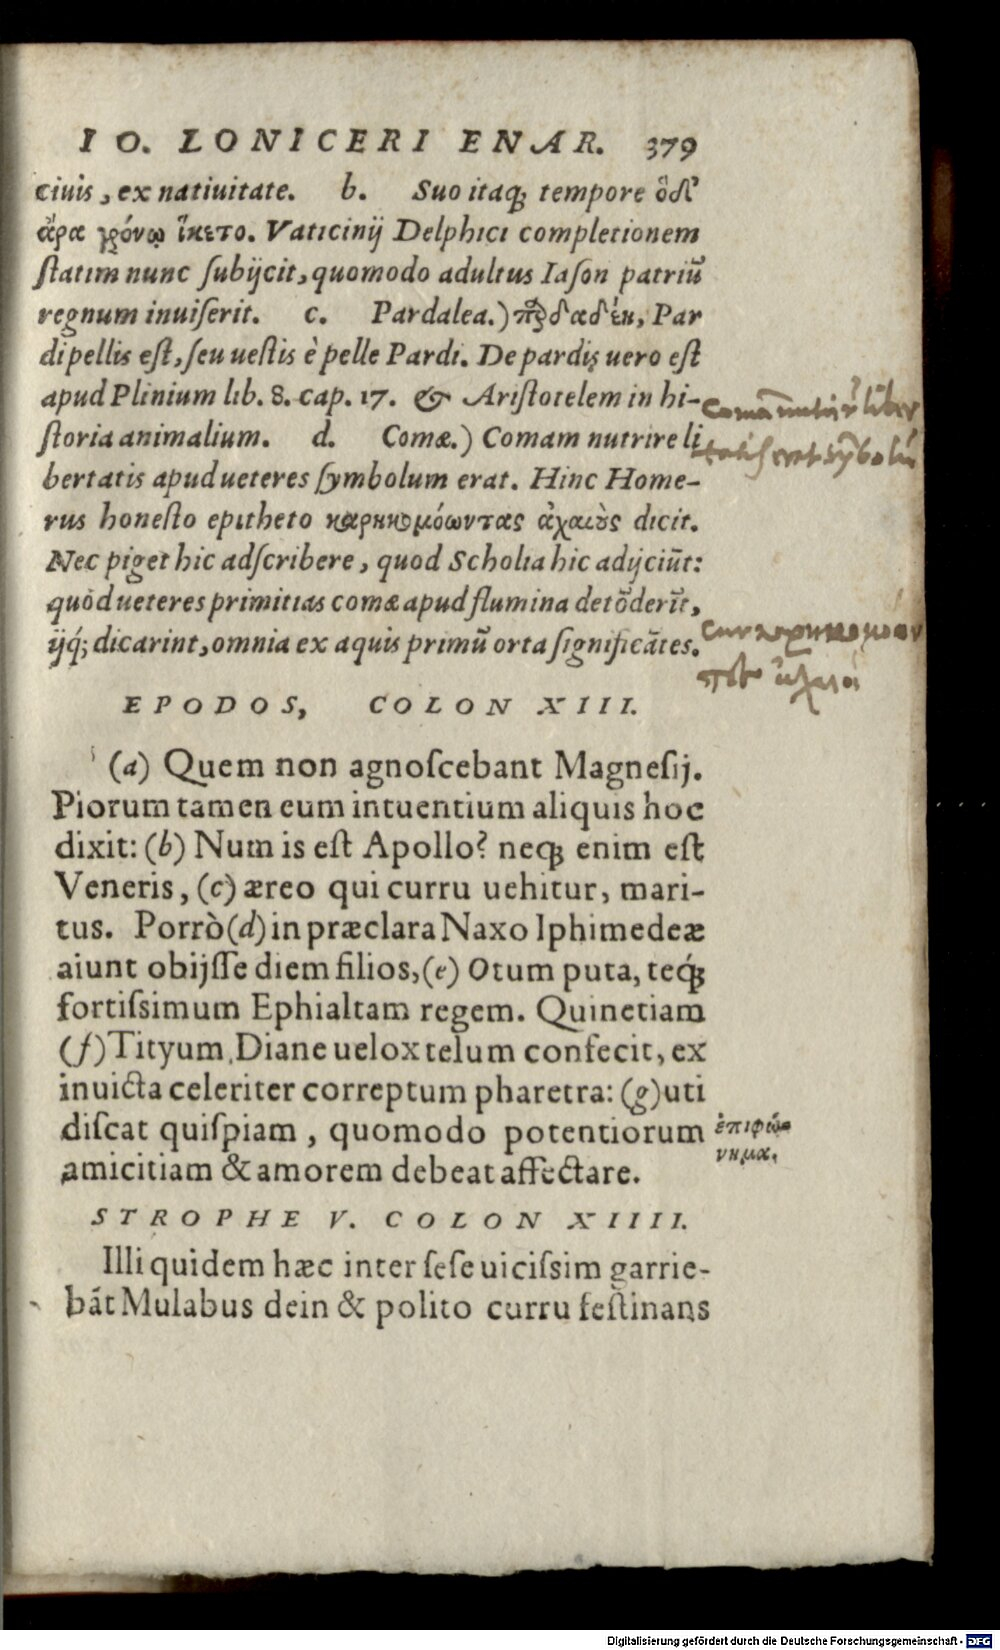 IO. LONICERI ENAR. 379
ciuis, ex natiuitate. b. Suo itaq; tempore ὅδ'
ἄρα χρόνῳ ἵκετο. Vaticinij Delphici completionem
ſtatim nunc ſubijcit, quomodo adultus Iaſon patriū
regnum inuiſerit. c. Pardalea.) παρδαλέη, Par
di pellis eſt, ſeu ueſtis è pelle Pardi. De pardis uero eſt
apud Plinium lib. 8. cap. 17. & Ariſtotelem in hi-
ſtoria animalium. d. Comæ.) Comam nutrire li
bertatis apud ueteres ſymbolum erat. Hinc Home-
rus honeſto epitheto καρηκομόωντας ἀχαιοὺς dicit.
Nec piget hic adſcribere, quod Scholia hic adijciūt:
quòd ueteres primitias comæ apud flumina detōderīt,
ijq́; dicarint, omnia ex aquis primū orta ſignificātes.
EPODOS, COLON XIII.
(a) Quem non agnoſcebant Magneſij.
Piorum tamen eum intuentium aliquis hoc
dixit: (b) Num is eſt Apollo? neq; enim eſt
Veneris, (c) æreo qui curru uehitur, mari-
tus. Porrò (d) in præclara Naxo Iphimedeæ
aiunt obijſſe diem filios, (e) Otum puta, teq́;
fortiſsimum Ephialtam regem. Quinetiam
(f) Tityum Diane uelox telum confecit, ex
inuicta celeriter correptum pharetra: (g) uti
diſcat quiſpiam, quomodo potentiorum
amicitiam & amorem debeat affectare.
STROPHE V. COLON XIIII.
Illi quidem hæc inter ſeſe uiciſsim garrie-
bāt Mulabus dein & polito curru feſtinans
liber
ſymbolū
ἐπιφώ-
νημα.
Digitalisierung gefördert durch die Deutsche Forschungsgemeinschaft - DFG